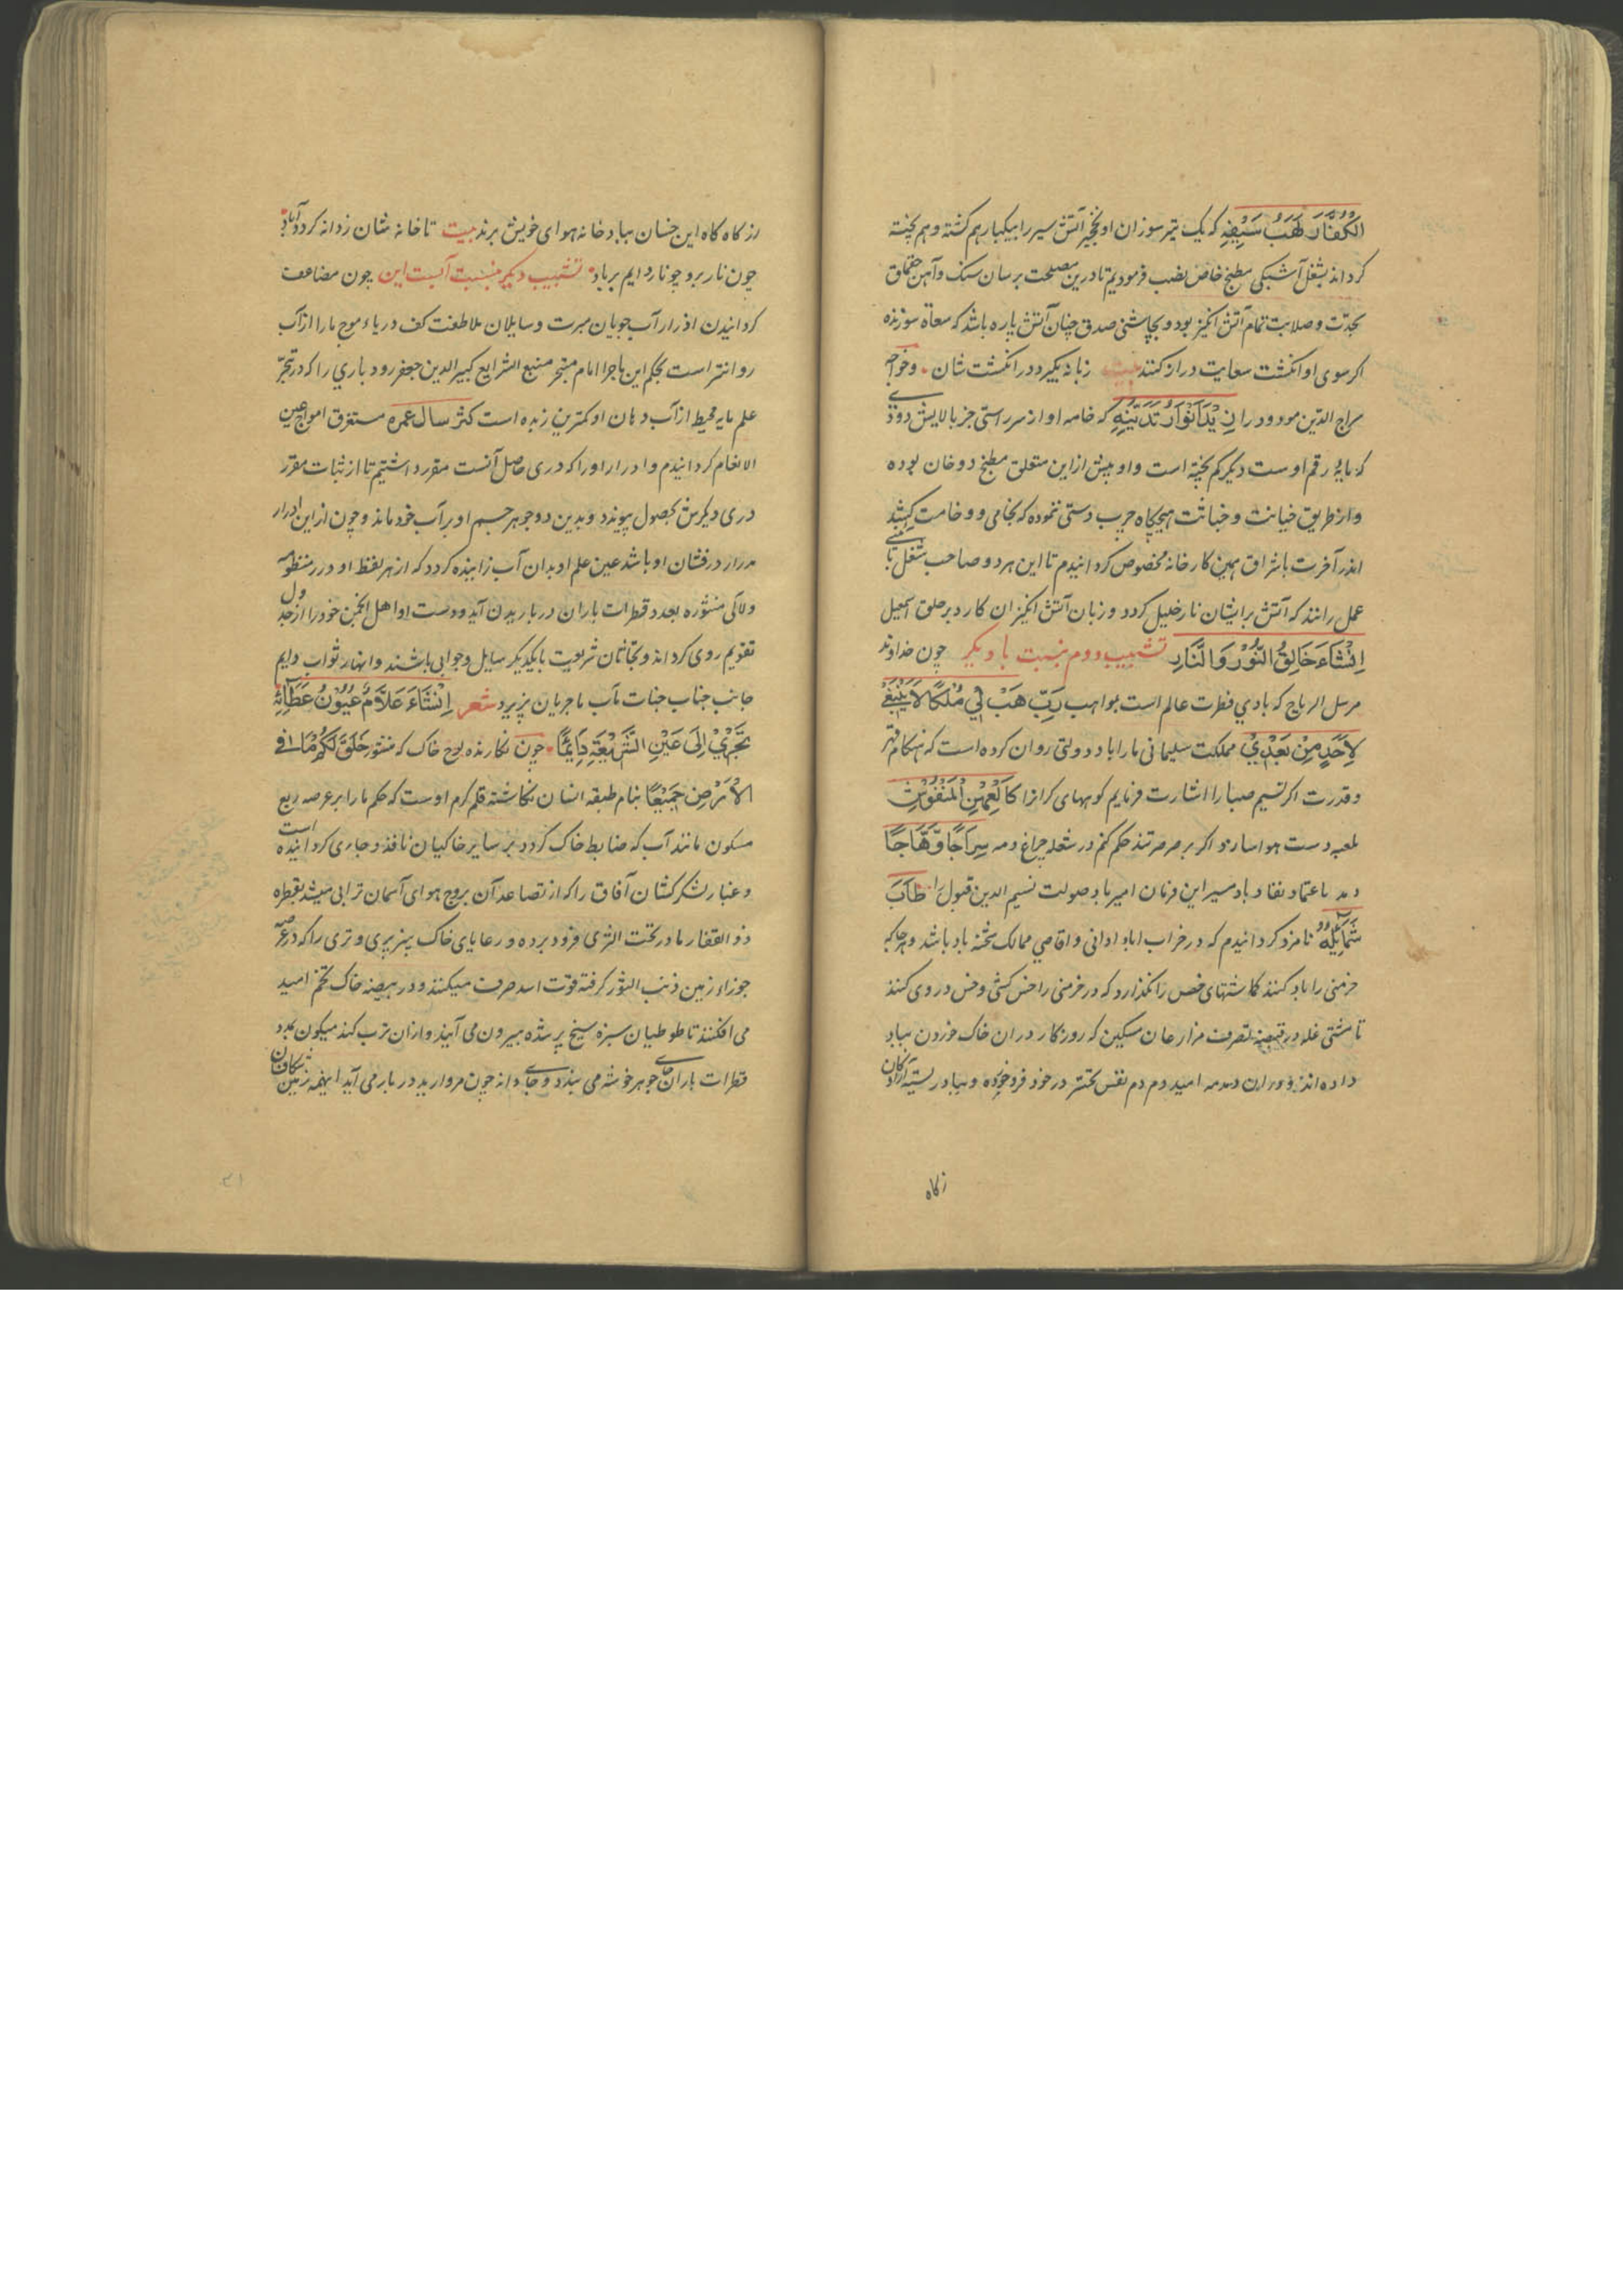 الکفار لهب سیفه که یک تیر سوزان او نخچیر آتش سیر را بیکبار هم کشته و هم پخته
کرداند بشغل آشبکی مطبخ خاص نصب فرمودیم تا درین مصلحت برسان سنک و آهن چقماق
بحدّت و صلابت تمام آتش انکیز بود و بچاشنی صدق چنان آتش پاره باشد که سعاة سوزنده
اکر سوی او انکشت سعایت دراز کنند بیت زبانه بکیرد در انکشت شان وخواجه
سراج الدّین مودود را زید انوار تدینه که خامه او از سر راستی جز بالایش دودی
که پایهٔ رقم اوست دیکر کم پخته است و او پیش ازین متعلق مطبخ دوخان بوده
و از طریق خیانت و خباثت هیچکاه چرب دستی ننموده که بخامی و وخامت کشد
اندر آخرت باشراق همین کارخانه مخصوص کردانیدم تا این هر دو صاحب شغل تا
عمل رانند که آتش برایشان نار خلیل کردد و زبان آتش انکیزان کارد بر حلق اسمعیل
اِنْشَاءَ خَالِقُ النُّوْرِ وَالنَّارِ تشبیب دوم نسبت باد دیکر چون خداوند
مرسل الریاح که بادی فطرت عالم است بمواهب رَبِّ هَبْ لِیْ مُلْکًا لاَ یَنْبَغِیْ
لِاَحَدٍ مِنْ بَعْدِیْ مملکت سلیمانی ما را باد دولتی روان کرده است که هنکام قهر
و قدرت اکر نسیم صبا را اشارت فرمایم کوههای کرانرا کَالْعِهْنِ الْمَنْفُوْشِ
لمعبه دست هوا سازد و اکر بر صرصر تند حکم کنم در شعله چراغ دمه سِرَاجًا وَّهَّاجًا
دمد باعتماد نفاد باد مسیر این فرمان امیر باد صولت نسیم الدین قبول را طَابَ
شَمَایِلُهُ نامزد کردانیدم که در خراب اباد ادانی و اقاصی ممالک شحنه باد باشد و هرجا که
خرمنی را باد کنند کماشتهای خس را نکذارد که در خرمنی را خس کشی و خس در وی کنند
تا مشتی غله در قبضه تصرف مزارعان مسکین که روزکار در ان خاک خوردن بباد
داده اند و در ان دمدمه امید دم دم نفس در خود فرو خورده و بباد
زکاه
از کاه کاه این خسان بباد خانه هوای خویش برند بیت تا خانه شان زدانه کردد آباد
چون نار برو چو نار دایم برباد تشبیب دیکر نسبت آبست این چون مضاعف
کردانیدن ادرار آب جویان مبرت و سایلان ملاطفت کف دریاء موج ما را از آب
روانتر است بحکم این ماجرا امام متبحر منبع الشرایع کبیر الدین جعفر رودباری را که در تبحّر
علم مایه محیط از آب دهان او کمترین زبده است کثر سال عمره مستغرق امواج عین
الانعام کردانیدم و ادرار او را که دری حاصل آنست مقرر داشتیم تا از ثبات مقرر
دری دیکرش بحصول پیوندد و بدین دو جوهر جسم او بر آب خود ماند و چون از این ادرار
مدرار درفشان او باشد عین علم او بدان آب زاینده کردد که از هر لفظ او درر منظومه
ولآلی منثوره بعدد قطرات باران در باریدن آید و دست او اهل انجمن خود را از جدول
تقویم روی کرداند و بحّاثان شریعت بایکدیکر سایل و جوابی باشند و انهار ثواب دایم
جانب جناب جنات مآب ما جریان پزیرد شعر اِنْشَاءَ عَلَّامُ عُیُوْنُ عَطَائِهِ
تَجْرِیْ اِلَی عَیْنِ الشَّرِیْعَةِ دَایِمًا چون نکارنده لوح خاک که منشور خَلَقَ لَکُمْ مَا فِی
الْاَرْضِ جَمِیْعًا بنام طبقه انسان نکاشته قلم کرم اوست که حکم ما را بر عرصه ربع
مسکون مانند آب که ضابط خاک کردد بر سایر خاکیان نافذ و جاری کردانیده است
و غبار لشکر کشان آفاق را که از تصاعد آن بروج هوای آسمان ترابی میشد بقطره
ذوالفقار ما در تحت الثری فرود برده و رعایای خاک بیزبری و تری را که در عرصه
جوزاء زمین ذنب الثور کرفته قوّت اسد صرف میکنند و در بیضه خاک تخم امید
می افکنند تا طوطیان سبزه سیخ پر شده بیرون می آیند و ازان ترب کند میکون بمدد
قطرات باران جای جوهر خوشه می بندد و جای دانه چون مروارید در بار می آید اینهمه
۳۱